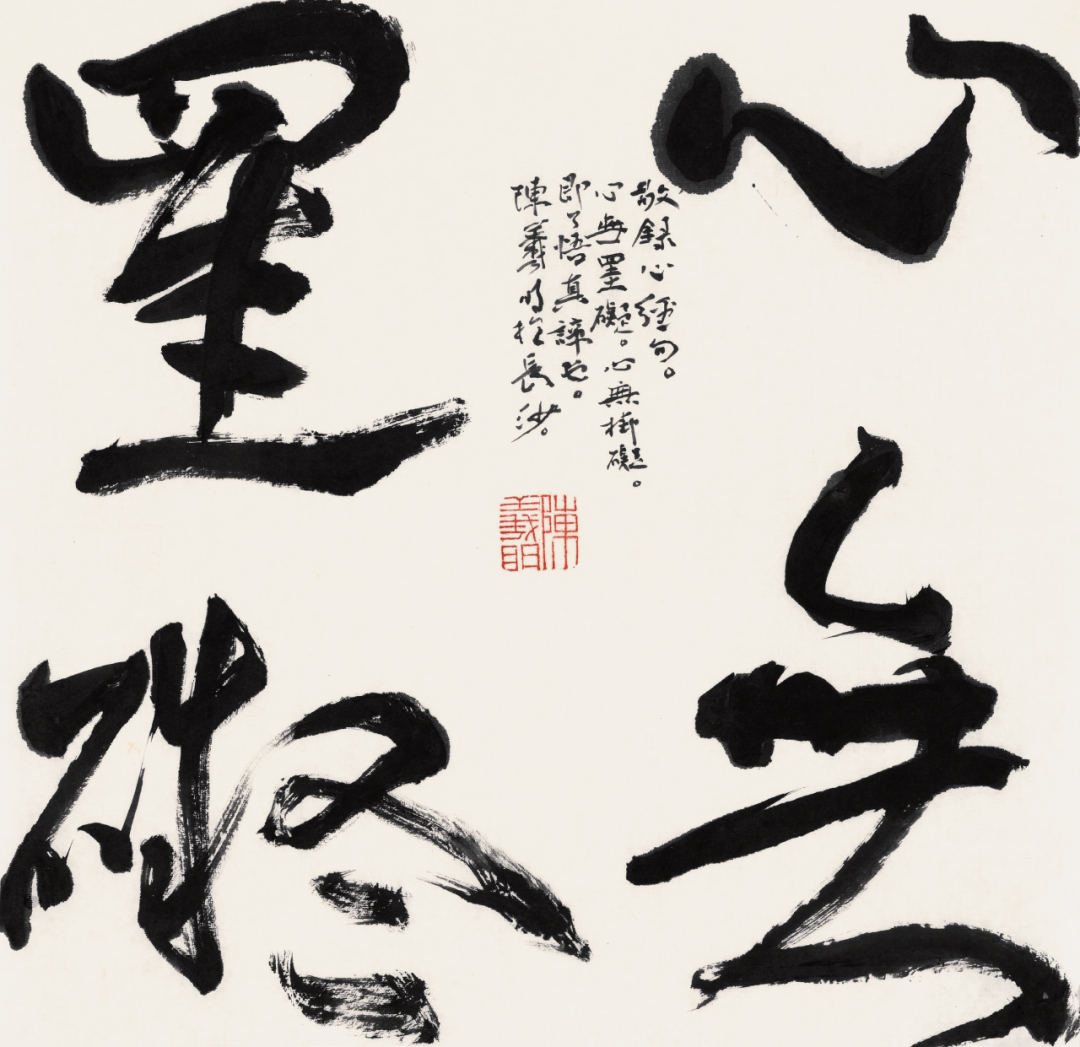 心無
罣礙
敬録心經句。
心無罣礙。心無掛礙。
即了悟真諦也。
陳羲明於長沙。
陳羲明